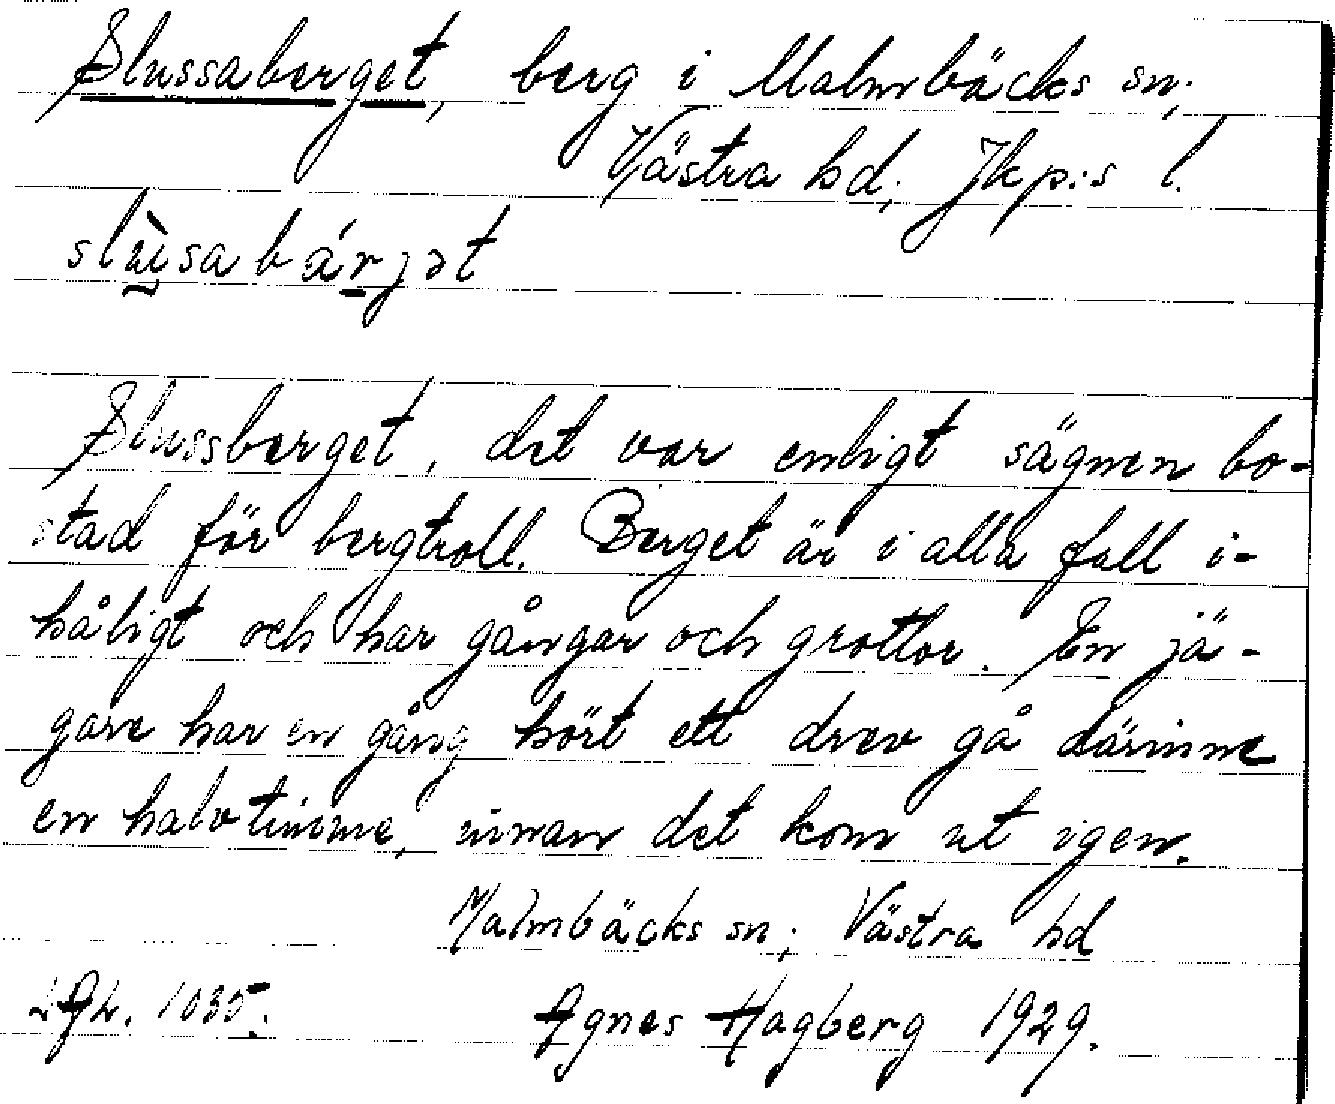 Slussaberget, berg i Malmbäcks sn;
Västra hd; Jkp:s l.
slùsabárjət
Slussberget, det var enligt sägnen bo-
stad för bergtroll. Berget är i alla fall i-
håligt och har gångar och grottor. En jä-
gare har en gång hört ett drev gå därinne
en halv timme, innan det kom ut igen.
Malmbäcks sn; Västra hd
1035. Agnes Hagberg 1929.